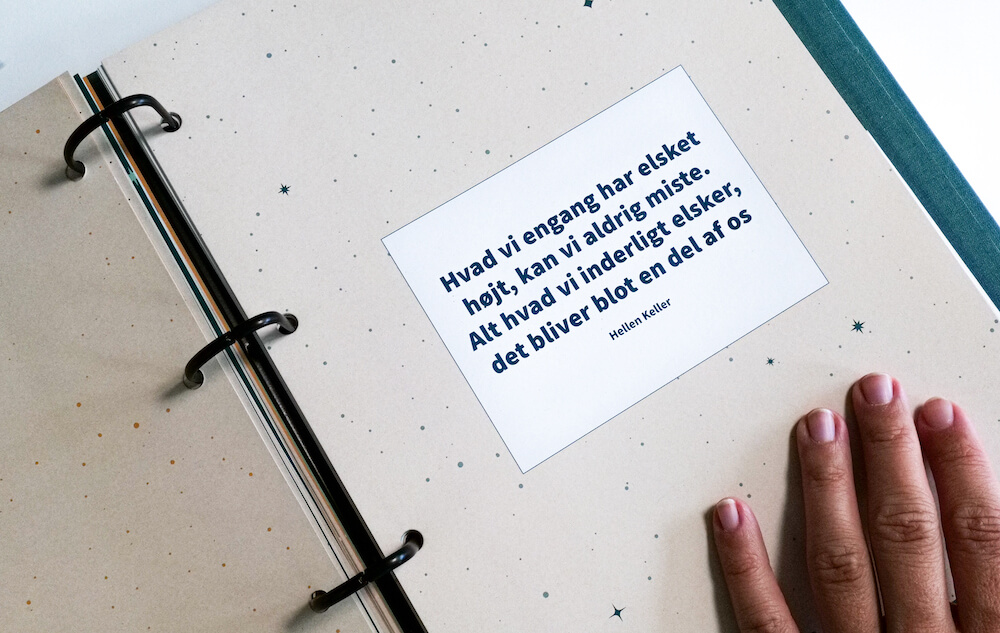 Hvad vi engang har elsket
højt, kan vi aldrig miste.
Alt hvad vi inderligt elsker,
det bliver blot en del af os
Hellen Keller